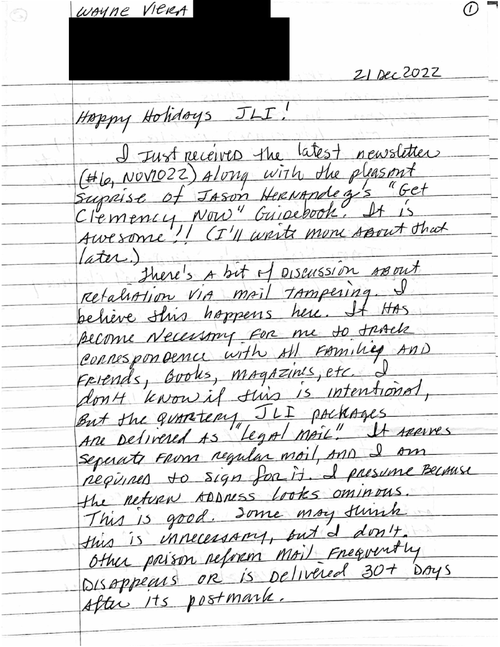 WAYNE VIERA
1
21 Dec 2022
Happy Holidays JLI!
I Just received the latest newsletter
(#6, NOV2022) Along with the pleasant
Suprise of JASON HERNANdez's "Get
Clemency Now" Guidebook. It is
Awesome!!! (I'll write more About that
later.)
There's A bit of DISCUSSION About
retaliation VIA mail TAmpering. I
believe this happens here. It HAS
Become Necessary For me to track
correspondence with All Families AND
Friends, Books, MAGAzines, etc. I
don't know if this is intentional,
But the quarterly JLI PACKAges
Are Delivered AS "Legal Mail." It Arrives
Seperate From regular mail, AND I Am
required to sign for it. I presume Because
the return ADDress looks ominous.
This is good. Some may think
this is unnecessary, but I don't.
Other prison reform MAil Frequently
Disappears OR is Delivered 30+ Days
After its postmark.